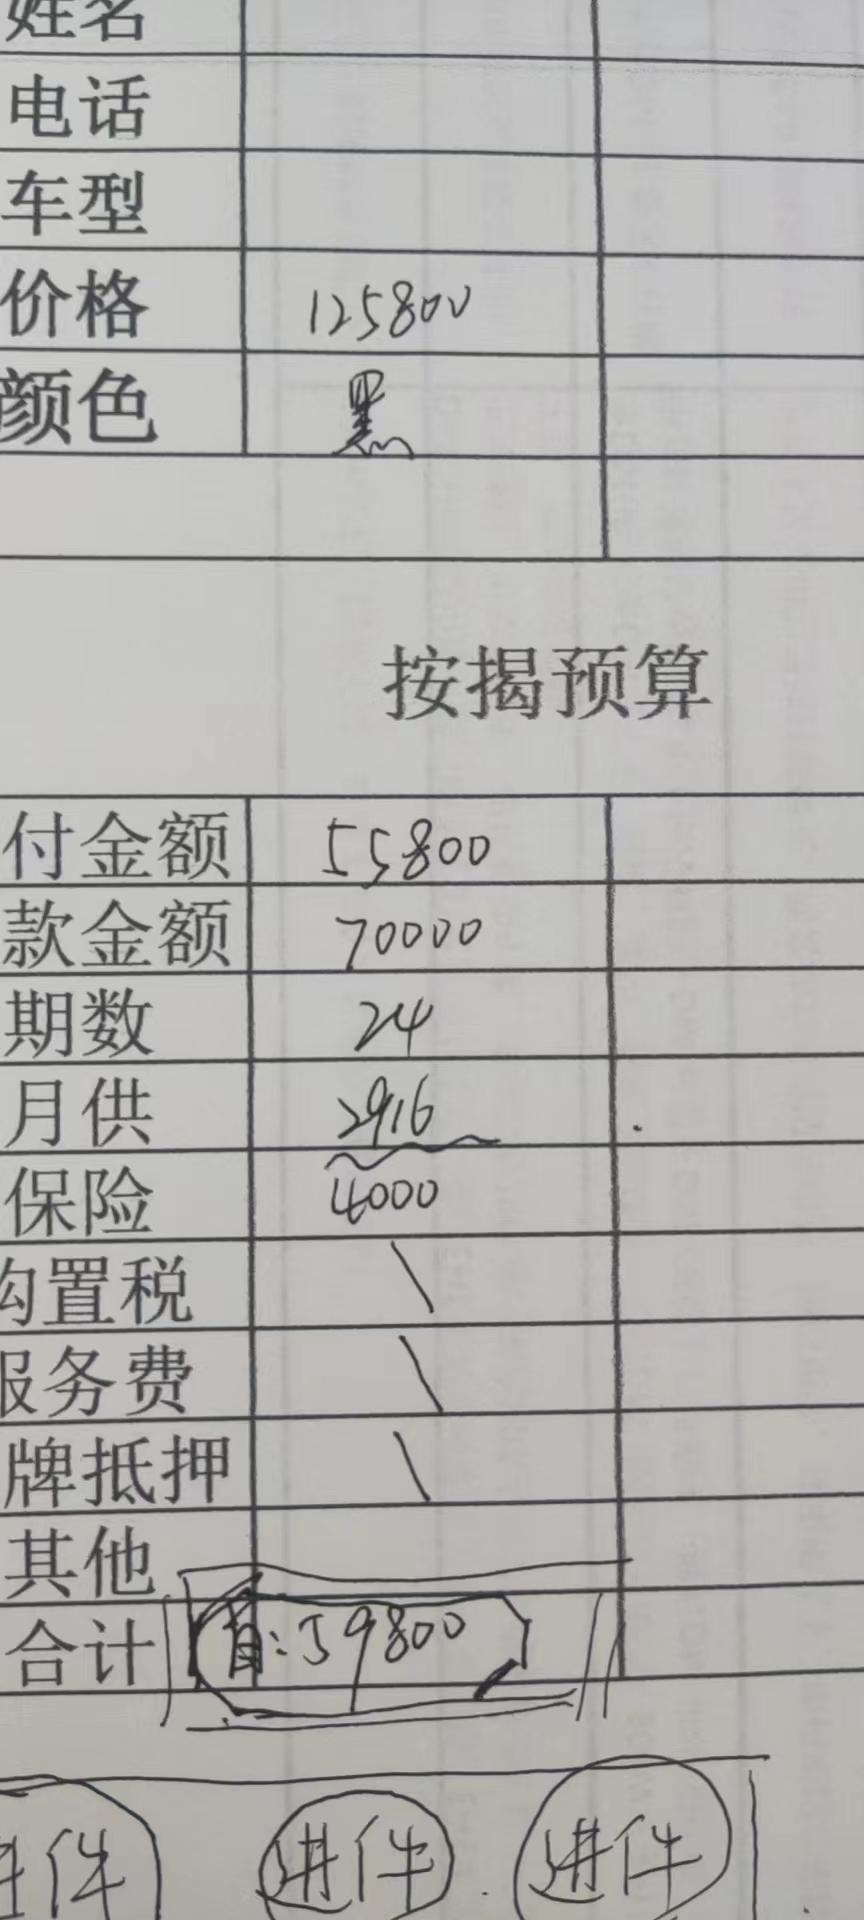 姓名
电话
车型
价格 125800
颜色 黑
按揭预算
付金额 55800
款金额 70000
期数 24
月供 2916
保险 4000
购置税 \
服务费 \
牌抵押 \
其他
合计 首:59800
进件 进件 进件